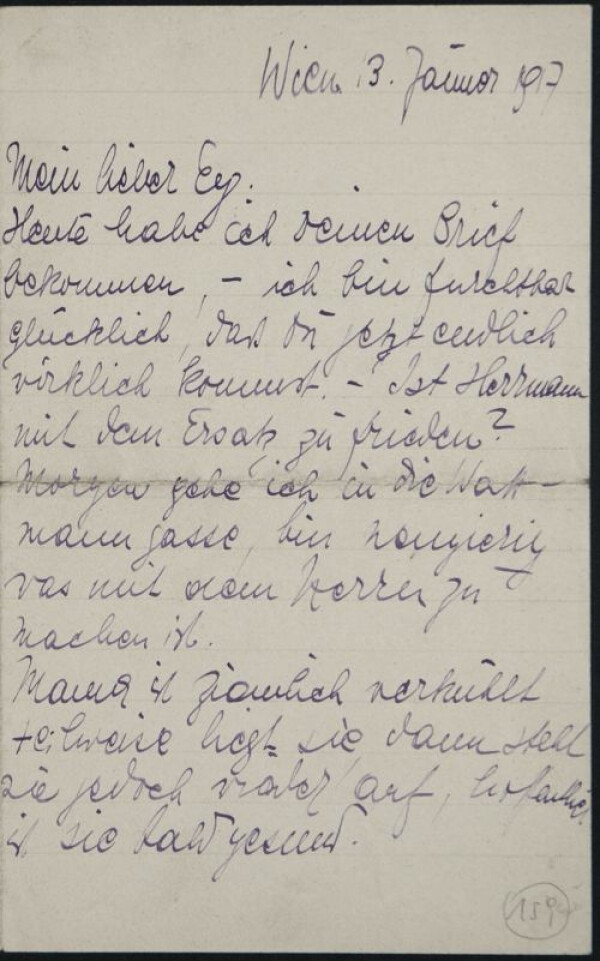 Wien 3. Jänner 1917
Mein lieber Eg.
Heute habe ich deinen Brief
bekommen, – ich bin furchtbar
glücklich, daß du jetzt endlich
wirklich kommst. – Ist Herrmann
mit dem Ersatz zufrieden?
Morgen gehe ich in die Watt-
manngasse, bin neugierig
was mit dem Herrn zu
machen ist.
Mama ist ziemlich verkühlt
teilweise liegt sie, dann steht
sie jedoch wieder auf, hofentlich
ist sie bald gesund.
159